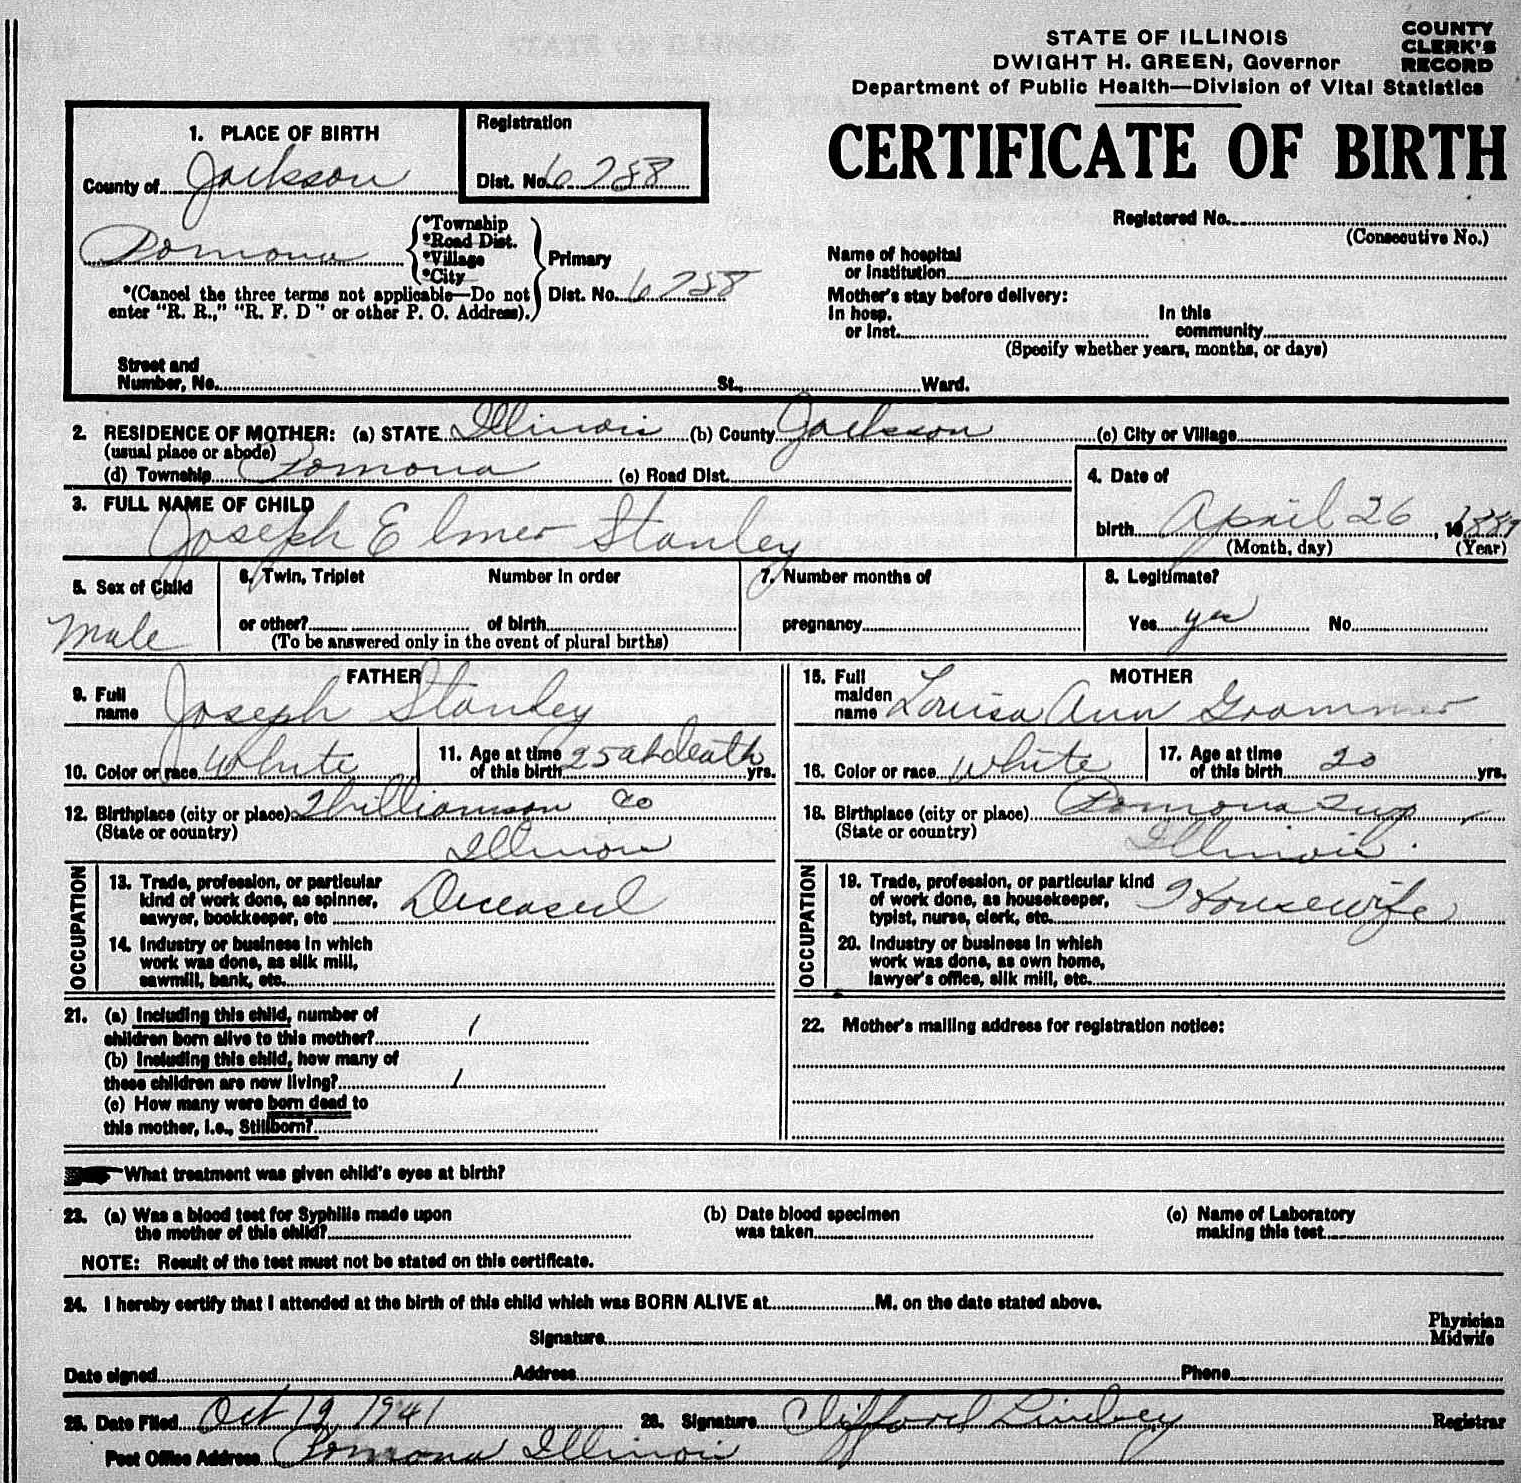 COUNTY CLERK'S RECORD
STATE OF ILLINOIS
DWIGHT H. GREEN, Governor
Department of Public Health—Division of Vital Statistics
CERTIFICATE OF BIRTH
1. PLACE OF BIRTH
County of Jackson
Registration
Dist. No. 6288
Pomona
*Township
*Road Dist.
*Village
*City
Primary
Dist. No. 6288
*(Cancel the three terms not applicable—Do not
enter "R. R.," "R. F. D" or other P. O. Address).
Street and
Number, No. St., Ward.
Registered No.
(Consecutive No.)
Name of hospital
or institution
Mother's stay before delivery:
In hosp. or inst. In this community
(Specify whether years, months, or days)
2. RESIDENCE OF MOTHER: (a) STATE Illinois (b) County Jackson (c) City or Village
(usual place or abode)
(d) Township Pomona (e) Road Dist.
3. FULL NAME OF CHILD
Joseph Elmer Stanley
4. Date of
birth April 26, 1889
(Month, day) (Year)
5. Sex of Child
Male
6. Twin, Triplet Number in order
or other? of birth
(To be answered only in the event of plural births)
7. Number months of
pregnancy
8. Legitimate?
Yes yes No
FATHER
9. Full
name Joseph Stanley
10. Color or race White
11. Age at time
of this birth 25 at death yrs.
12. Birthplace (city or place) Williamson Co
(State or country) Illinois
OCCUPATION
13. Trade, profession, or particular
kind of work done, as spinner,
sawyer, bookkeeper, etc Deceased
14. Industry or business in which
work was done, as silk mill,
sawmill, bank, etc.
MOTHER
15. Full
maiden
name Louisa Ann Grammer
16. Color or race White
17. Age at time
of this birth 20 yrs.
18. Birthplace (city or place) Pomona Twp
(State or country) Illinois.
OCCUPATION
19. Trade, profession, or particular kind
of work done, as housekeeper,
typist, nurse, clerk, etc. Housewife
20. Industry or business in which
work was done, as own home,
lawyer's office, silk mill, etc.
21. (a) Including this child, number of
children born alive to this mother? 1
(b) Including this child, how many of
these children are now living? 1
(c) How many were born dead to
this mother, i.e., Stillborn?
22. Mother's mailing address for registration notice:
What treatment was given child's eyes at birth?
23. (a) Was a blood test for Syphilis made upon
the mother of this child?
(b) Date blood specimen
was taken
(c) Name of Laboratory
making this test
NOTE: Result of the test must not be stated on this certificate.
24. I hereby certify that I attended at the birth of this child which was BORN ALIVE at M. on the date stated above.
Signature Physician
Midwife
Date signed Address Phone
25. Date Filed Oct 12 1941 26. Signature Clifford Lindsey Registrar
Post Office Address Pomona Illinois